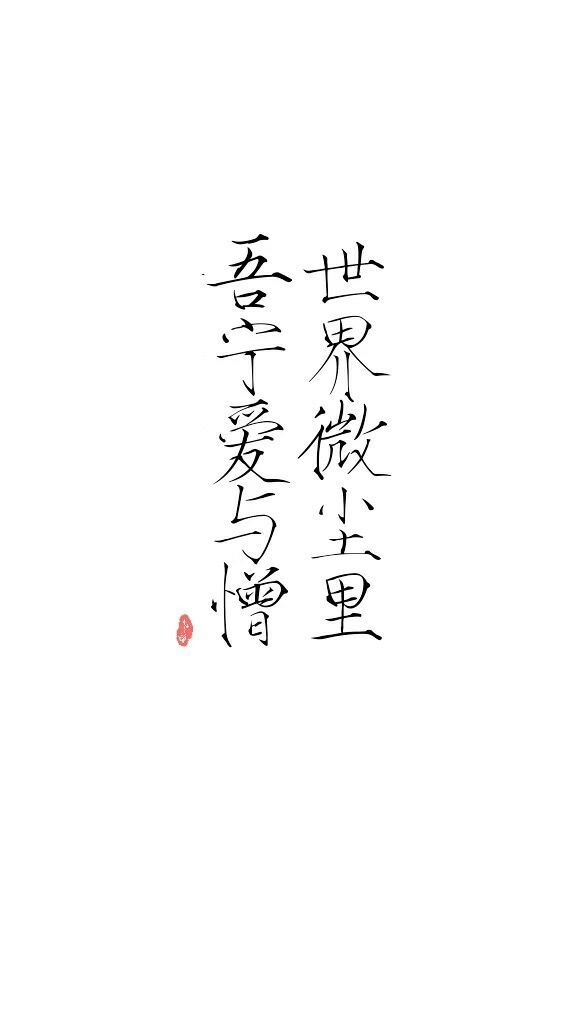 世界微尘里
吾宁爱与憎